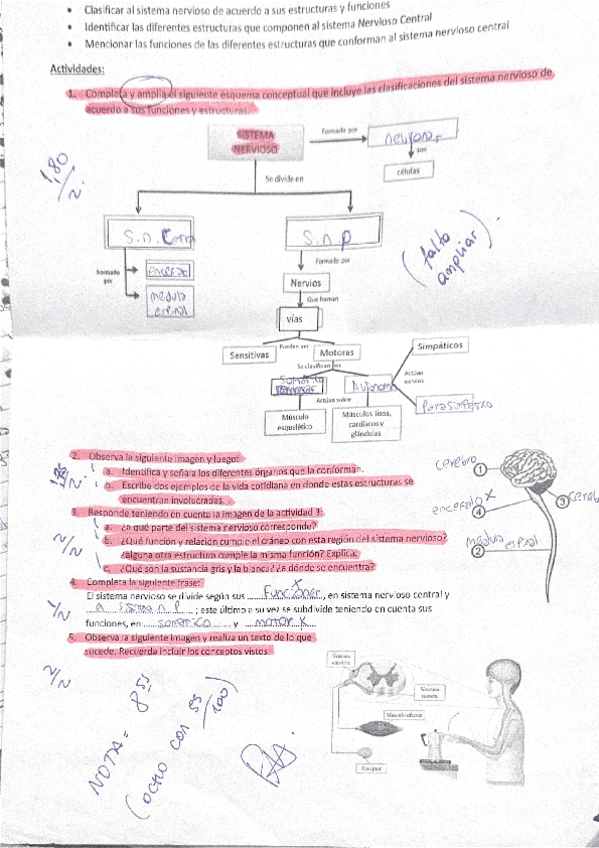 • Clasificar al sistema nervioso de acuerdo a sus estructuras y funciones
• Identificar las diferentes estructuras que componen al sistema Nervioso Central
• Mencionar las funciones de las diferentes estructuras que conforman al sistema nervioso central
Actividades:
1. Completa y amplia el siguiente esquema conceptual que incluye las clasificaciones del sistema nervioso de
acuerdo a sus funciones y estructuras.
SISTEMA
NERVIOSO
Formado por
neuronas
son
células
1,80/2.
Se divide en
S.n.
S.n.p
(falto
ampliar).
Formado
por
encefalo
medula
espinal
Formado por
Nervios
Que forman
vías
Pueden ser
Sensitivas
Motoras
Simpáticos
Se clasifican en
Actúan
Somatica
Autonoma
Parasimpatico
Actúan sobre
Músculo
esquelético
Músculos lisos,
cardíacos y
glándulas
2. Observa la siguiente imagen y luego:
a. Identifica y señala los diferentes órganos que la conforman.
b. Escribe dos ejemplos de la vida cotidiana en donde estas estructuras se
encuentran involucradas.
cerebro 1
3
encefalo x 4
medula espinal 2
3. Responde teniendo en cuenta la imagen de la actividad 3:
a. ¿a qué parte del sistema nervioso corresponde?
b. ¿Qué función y relación cumple el cráneo con esta región del sistema nervioso?
¿alguna otra estructura cumple la misma función? Explica.
c. ¿Qué son la sustancia gris y la blanca? ¿a dónde se encuentra?
2/2
4. Completa la siguiente frase:
El sistema nervioso se divide según sus funciones, en sistema nervioso central y
n P ; este último a su vez se subdivide teniendo en cuenta sus
funciones, en somatica y motor x
1/2
5. Observa la siguiente imagen y realiza un texto de lo que
sucede. Recuerda incluir los conceptos vistos.
2/2
NOTA = 8,55
(ocho con 55/100)
Neurona
Neurona
Receptor